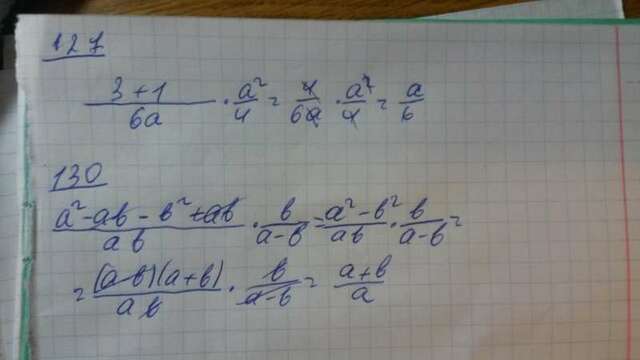 127
(3+1)/(6a) · a²/4 = 4/(6a) · a²/4 = a/6
130
(a²-ab-b²+ab)/(ab) · b/(a-b) = (a²-b²)/(ab) · b/(a-b) =
= ((a-b)(a+b))/(ab) · b/(a-b) = (a+b)/a